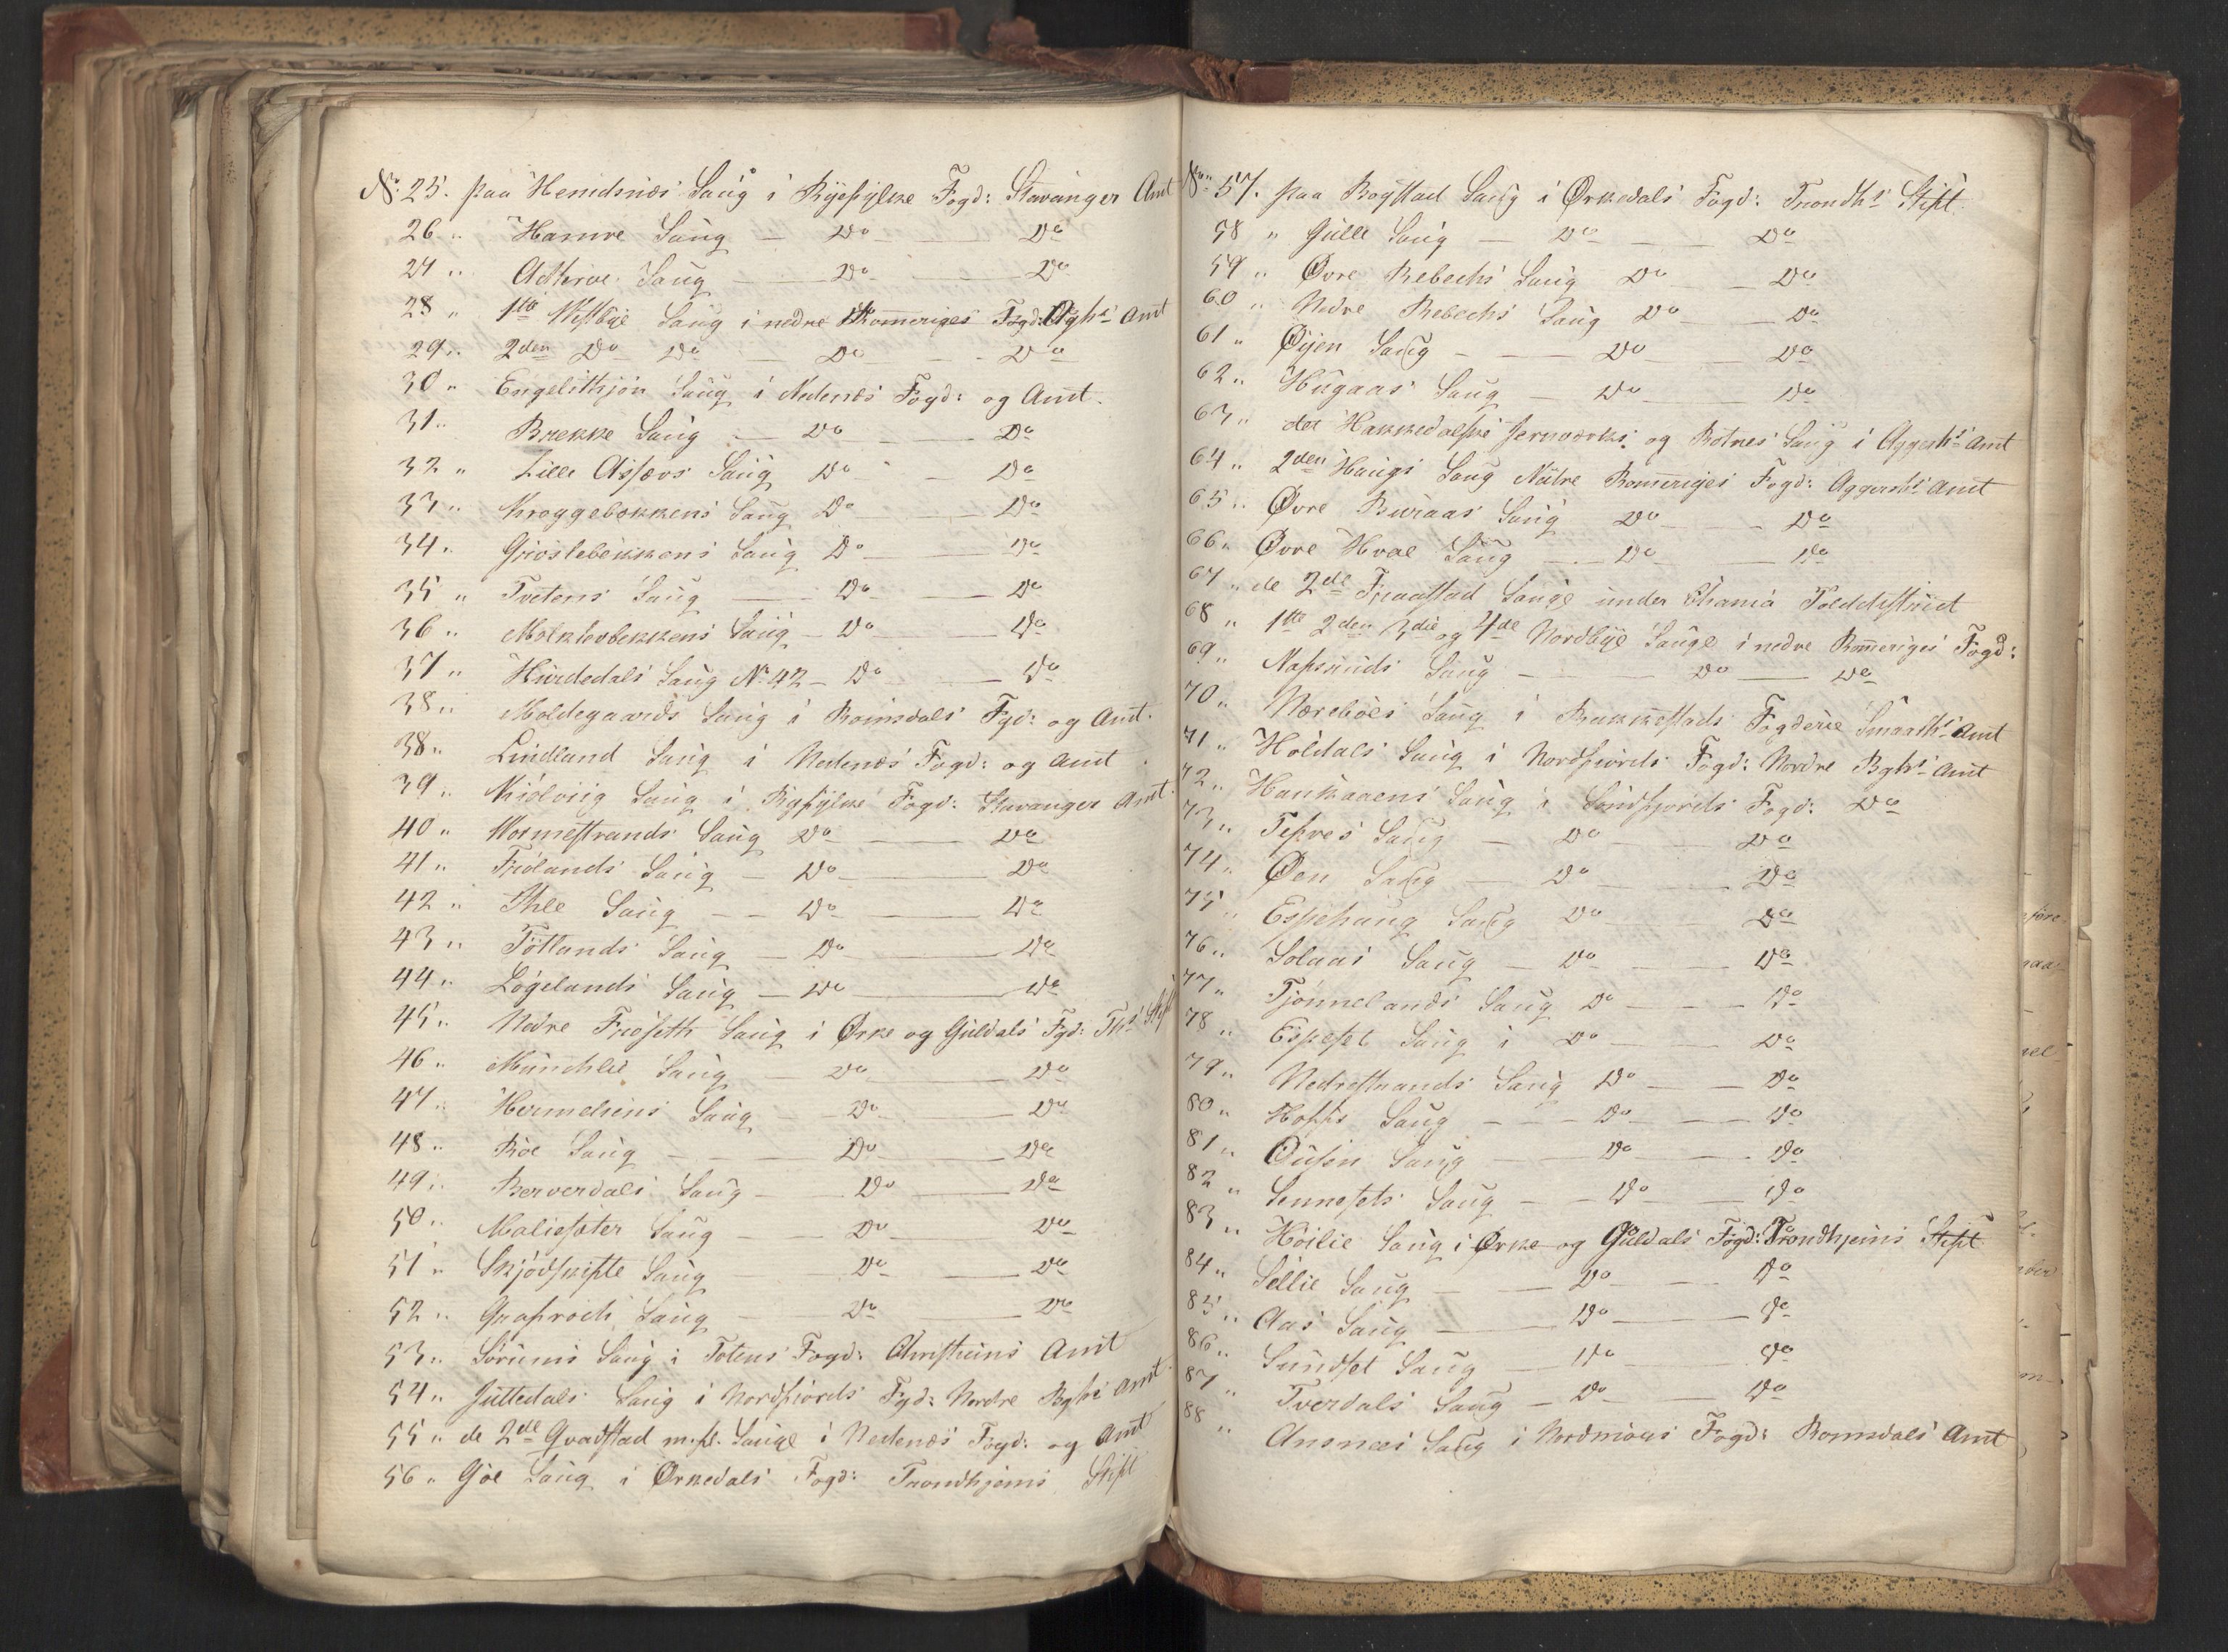 No. 25. paa Hemdsnæs Saug i Ryefylke Fogd: Stavanger Amt
26 " Hamre Saug — Do — Do
27 " Adkroe Saug — Do — Do
28 " 1ste Westbye Saug i nedre Rommeriges Fogd: Aghs Amt
29 " 2den Do Do — Do — Do
30 " Engelithjön Saug i Nedenæs Fogd: og Amt.
31 " Brekke Saug — Do — Do
32 " Lille Assævs Saug Do — Do
33 " Kroggebækkens Saug Do — Do
34 " Grøslebekkens Saug Do — Do
35 " Tvetens Saug — Do — Do
36 " Molklevbekkens Saug — Do — Do
37 " Hurdedals Saug No. 42 — Do — Do
38 " Moldegaards Saug i Romsdals Fgd: og Amt.
38 " Lindland Saug i Nedenæs Fogd: og Amt
39 " Kiølviig Saug i Ryfylke Fogd: Stavanger Amt.
40 " Wormestrands Saug Do — Do
41 " Frølands Saug — Do — Do
42 " Thle Saug — Do — Do
43 " Töttlands Saug — Do — Do
44 " Lögelands Saug — Do — Do
45 " Nedre Frøseth Saug i Ørke og Guldals Fgd: Ths Stift
46 " Münchlie Saug — Do — Do
47 " Hermeliens Saug — Do — Do
48 " Röe Saug — Do — Do
49 " Berverdals Saug — Do — Do
50 " Maliesæter Saug — Do — Do
51 " Skjödskifte Saug — Do — Do
52 " Grasroch Saug — Do — Do
53 " Sörums Saug i Totens Fogd: Christians Amt
54 " Juttedals Saug i Nordfiords Fgd: Nordre Bghs Amt.
55 " de 2de Qvadstad m. fl. Sauge i Nedenæs Fogd: og Amt
56 " Göe Saug i Ørkedals Fogd: Trondhjems Stift
No. 57. paa Bogstad Saug i Ørkedals Fogd: Trondhs Stift
58 " Gülle Saug — Do — Do
59 " Øvre Rebechs Saug Do — Do
60 " Nedre Rebechs Saug Do — Do
61 " Øyen Saug — Do — Do
62 " Hugaas Saug — Do — Do
63 " det Hakkedalske Jernværks og Rotnes Saug i Aggershs Amt
64 " 2den Haugs Saug Nedre Romeriges Fogd: Aggershs Amt
65 " Øvre Buraas Saug Do — Do
66 " Øvre Hvae Saug — Do — Do
67 " de 2de Fraastad Sauge under Chania Tolddistrict
68 " 1ste 2den 3die og 4de Nordbye Sauge i nedre Romeriges Fogd:
69 " Næsrüds Saug — Do — Do
70 " Næreböes Saug i Rakkestads Fogderie Smaalhs Amt
71 " Holdals Saug i Nordfiords Fogd: Nordre Bghs Amt
72 " Haukaaens Saug i Söndfjords Fogd: Do
73 " Tefsres Saug — Do — Do
74 " Øen Saug — Do — Do
75 " Espehaug Saug Do — Do
76 " Solaas Saug — Do — Do
77 " Tjönnelands Saug Do — Do
78 " Espeset Saug i Do — Do
79 " Nedrestrands Saug Do — Do
80 " Hopps Saug — Do — Do
81 " Ousen Saug — Do — Do
82 " Sennesets Saug — Do — Do
83 " Höilie Saug i Ørke og Guldals Fogd: Trondhjems Stift
84 " Sellie Saug — Do — Do
85 " Aas Saug — Do — Do
86 " Sundset Saug — Do — Do
87 " Tverdals Saug — Do — Do
88 " Ansnæs Saug i Nordmörs Fogd: Romsdals Amt